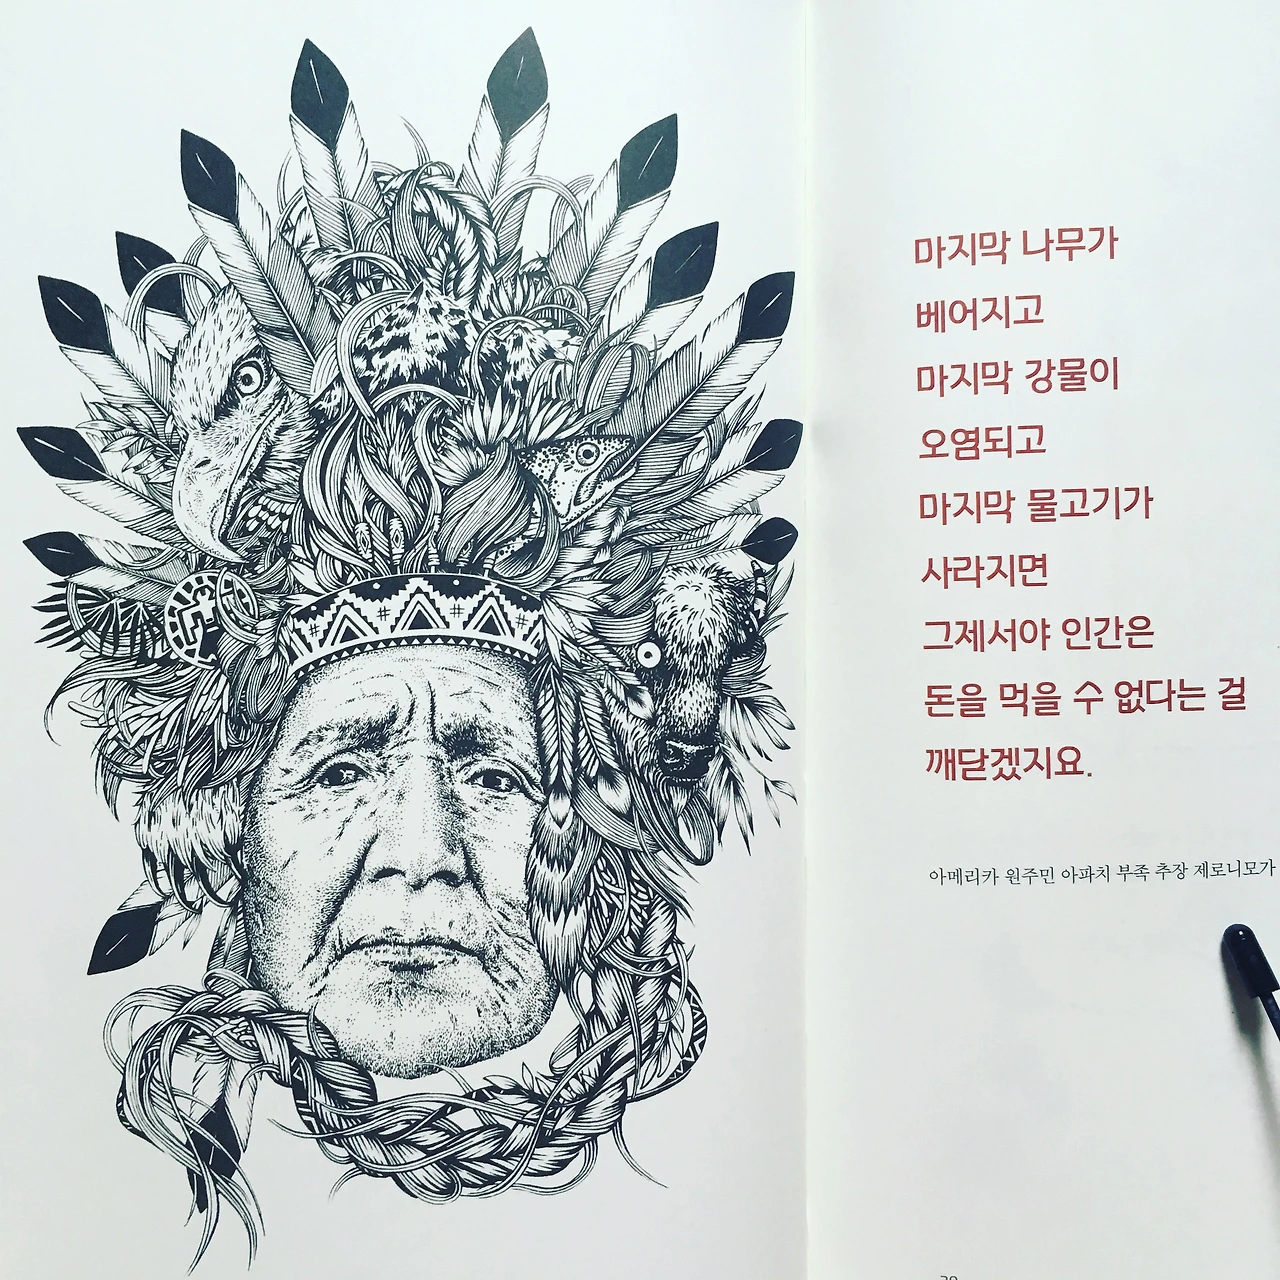 마지막 나무가
베어지고
마지막 강물이
오염되고
마지막 물고기가
사라지면
그제서야 인간은
돈을 먹을 수 없다는 걸
깨닫겠지요.
아메리카 원주민 아파치 부족 추장 제로니모가